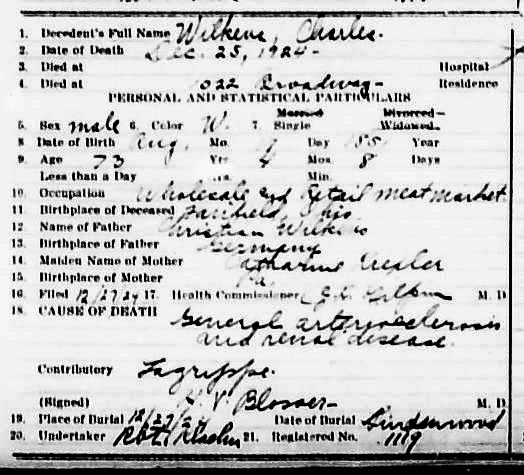 1. Decedent's Full Name Wilkens, Charles.
2. Date of Death Dec. 25, 1924-
3. Died at Hospital
4. Died at 1022 Broadway- Residence
PERSONAL AND STATISTICAL PARTICULARS
Married Divorced
5. Sex male 6. Color W. 7. Single Widowed
8 Date of Birth Aug. Mo. Day Year
9. Age 73 Yrs 4 Mos. 8 Days
Less than a Day Hrs. Min.
10. Occupation Wholesale and Retail meat market.
11. Birthplace of Deceased Fairfield, Ohio
12. Name of Father Christian Wilkens
13. Birthplace of Father Germany
14. Maiden Name of Mother Catharine
15. Birthplace of Mother
16. Filed 12/27/24 17. Health Commissioner M. D
18. CAUSE OF DEATH General arteriosclerosis
and renal disease.
Contributory Lagrippe.
(Signed) V Blosser M. D.
19. Place of Burial 12/27/24 Date of Burial Lindenwood
20. Undertaker Robt Klaehn 21. Registered No. 1119